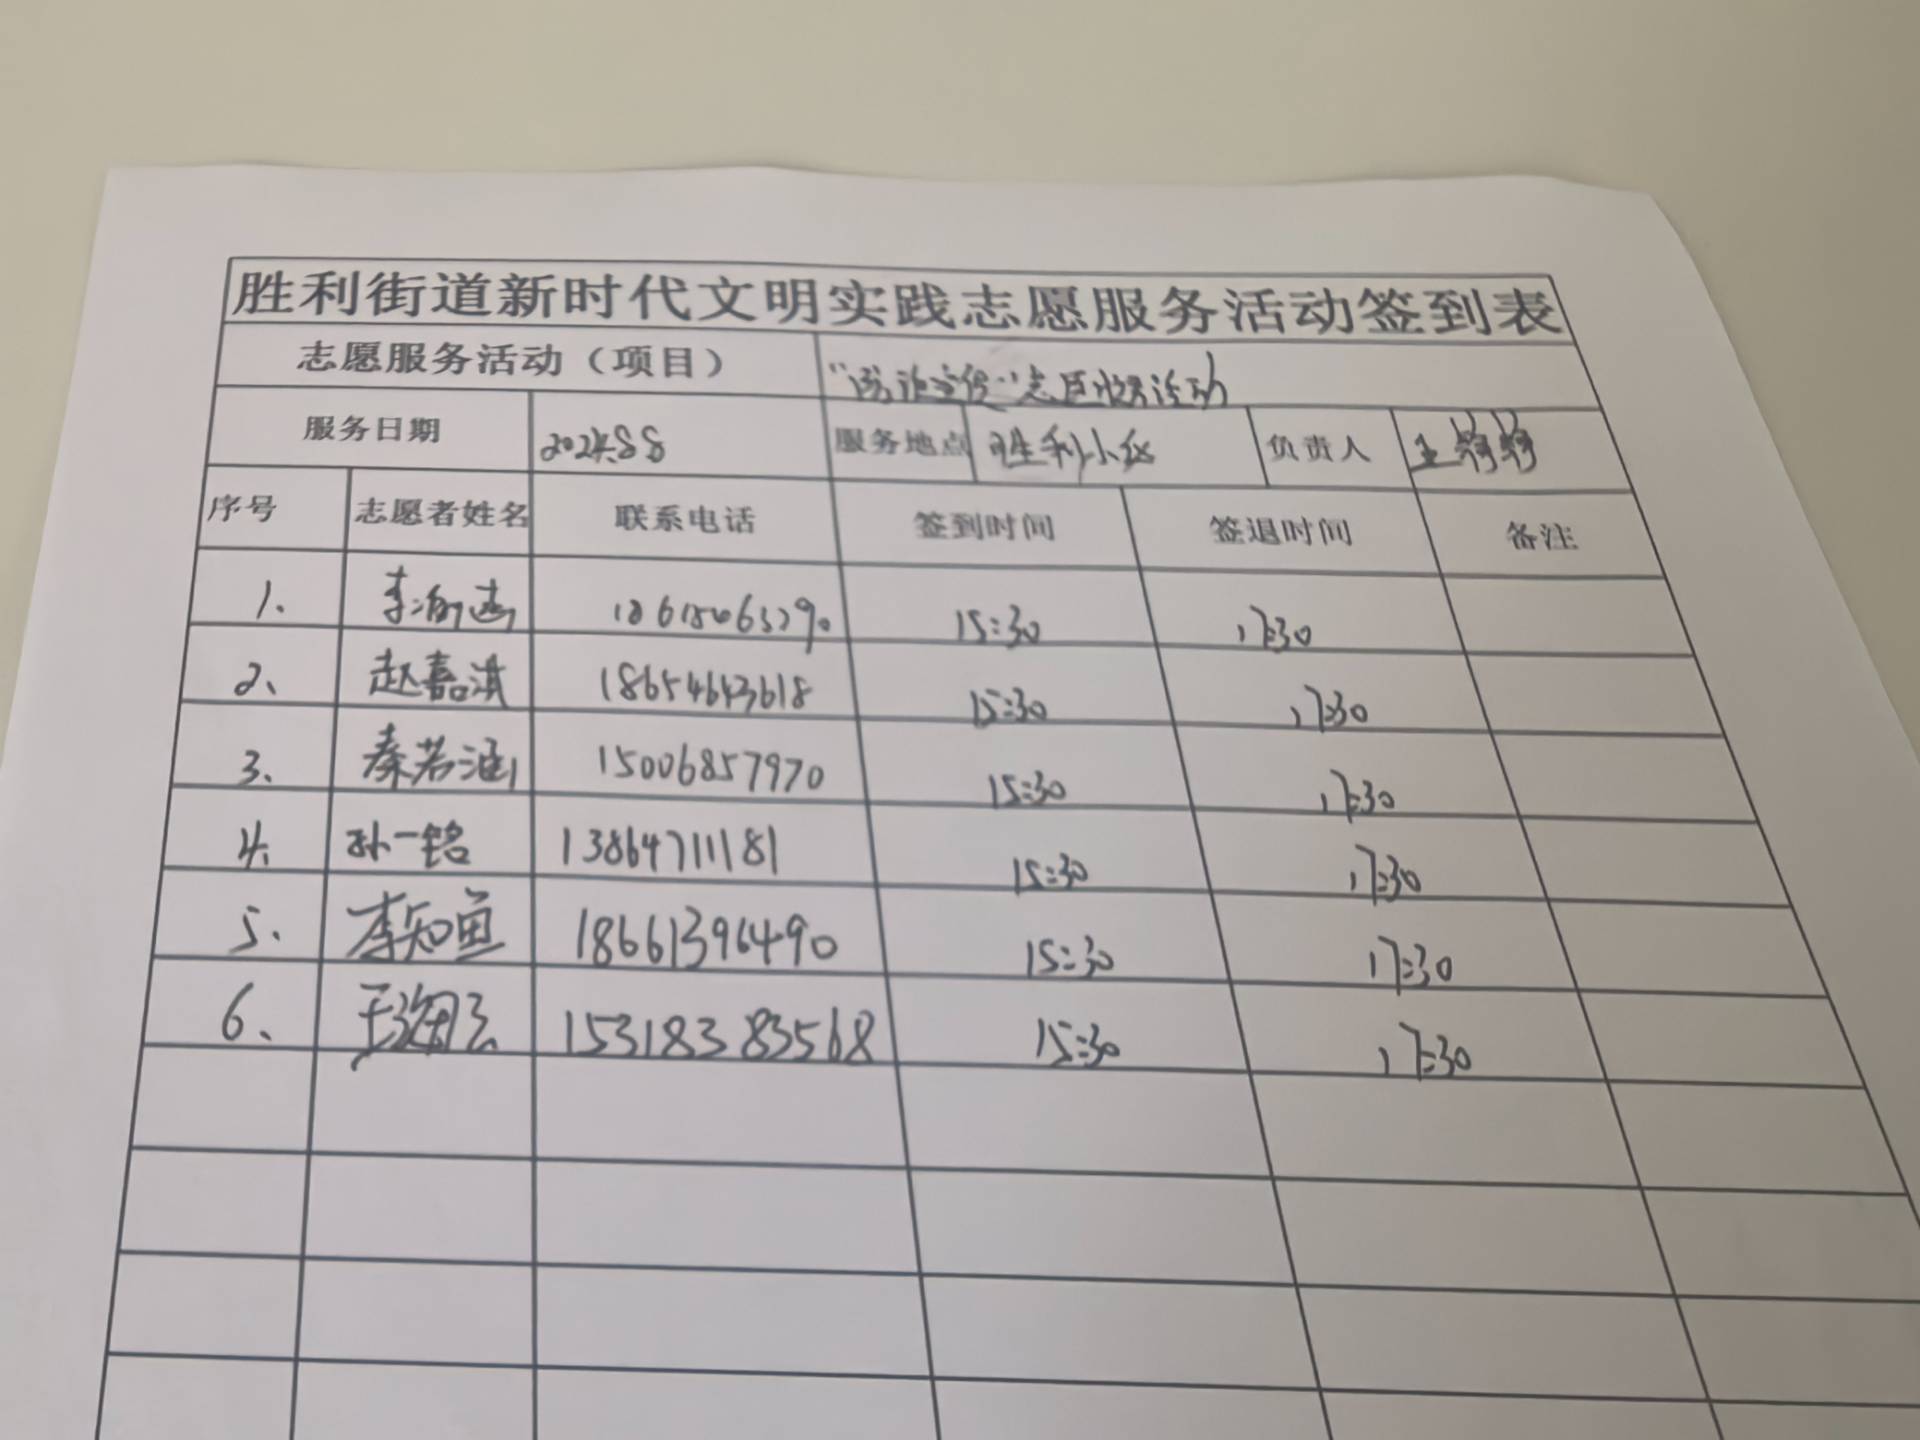 胜利街道新时代文明实践志愿服务活动签到表
志愿服务活动（项目） 志愿服务活动
服务日期 2024.8.8 服务地点 胜利小区 负责人 王
序号 志愿者姓名 联系电话 签到时间 签退时间 备注
1、 李 15:30 17:30
2、 赵嘉淇 18654643618 15:30 17:30
3、 秦若涵 15006857970 15:30 17:30
4、 孙一铭 13864711181 15:30 17:30
5、 李知鱼 18661396490 15:30 17:30
6、 王 15318383568 15:30 17:30